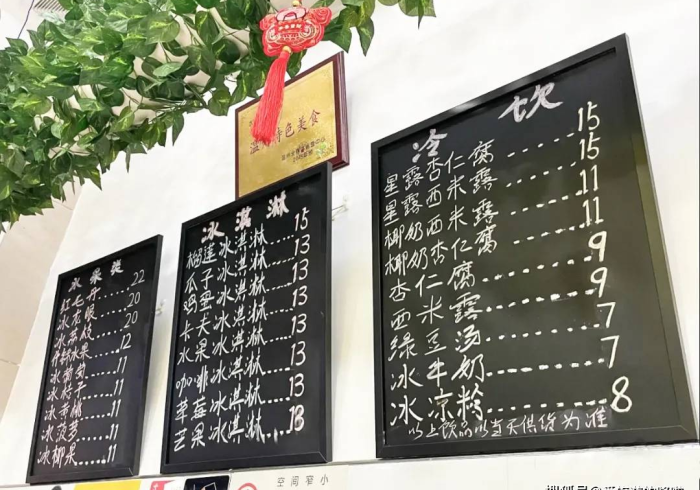 温州特色美食
水果类
红毛丹......22
冰龙眼......20
冰荔枝......20
什锦水果......12
冰葡萄......11
冰......11
冰......11
冰菠萝......11
冰椰果......11
冰淇淋
榴莲冰淇淋......15
瓜子冰淇淋......13
鸡蛋冰淇淋......13
卡夫冰淇淋......13
水果冰淇淋......13
咖啡冰淇淋......13
草莓冰淇淋......13
芒果冰淇淋......13
冷饮
星露杏仁腐......15
星露西米露......15
椰奶西米露......11
椰奶杏仁腐......11
杏仁腐......9
西米露......9
绿豆汤......7
冰牛奶......7
冰凉粉......8
以上饮品以当天供给为准
空间窄小